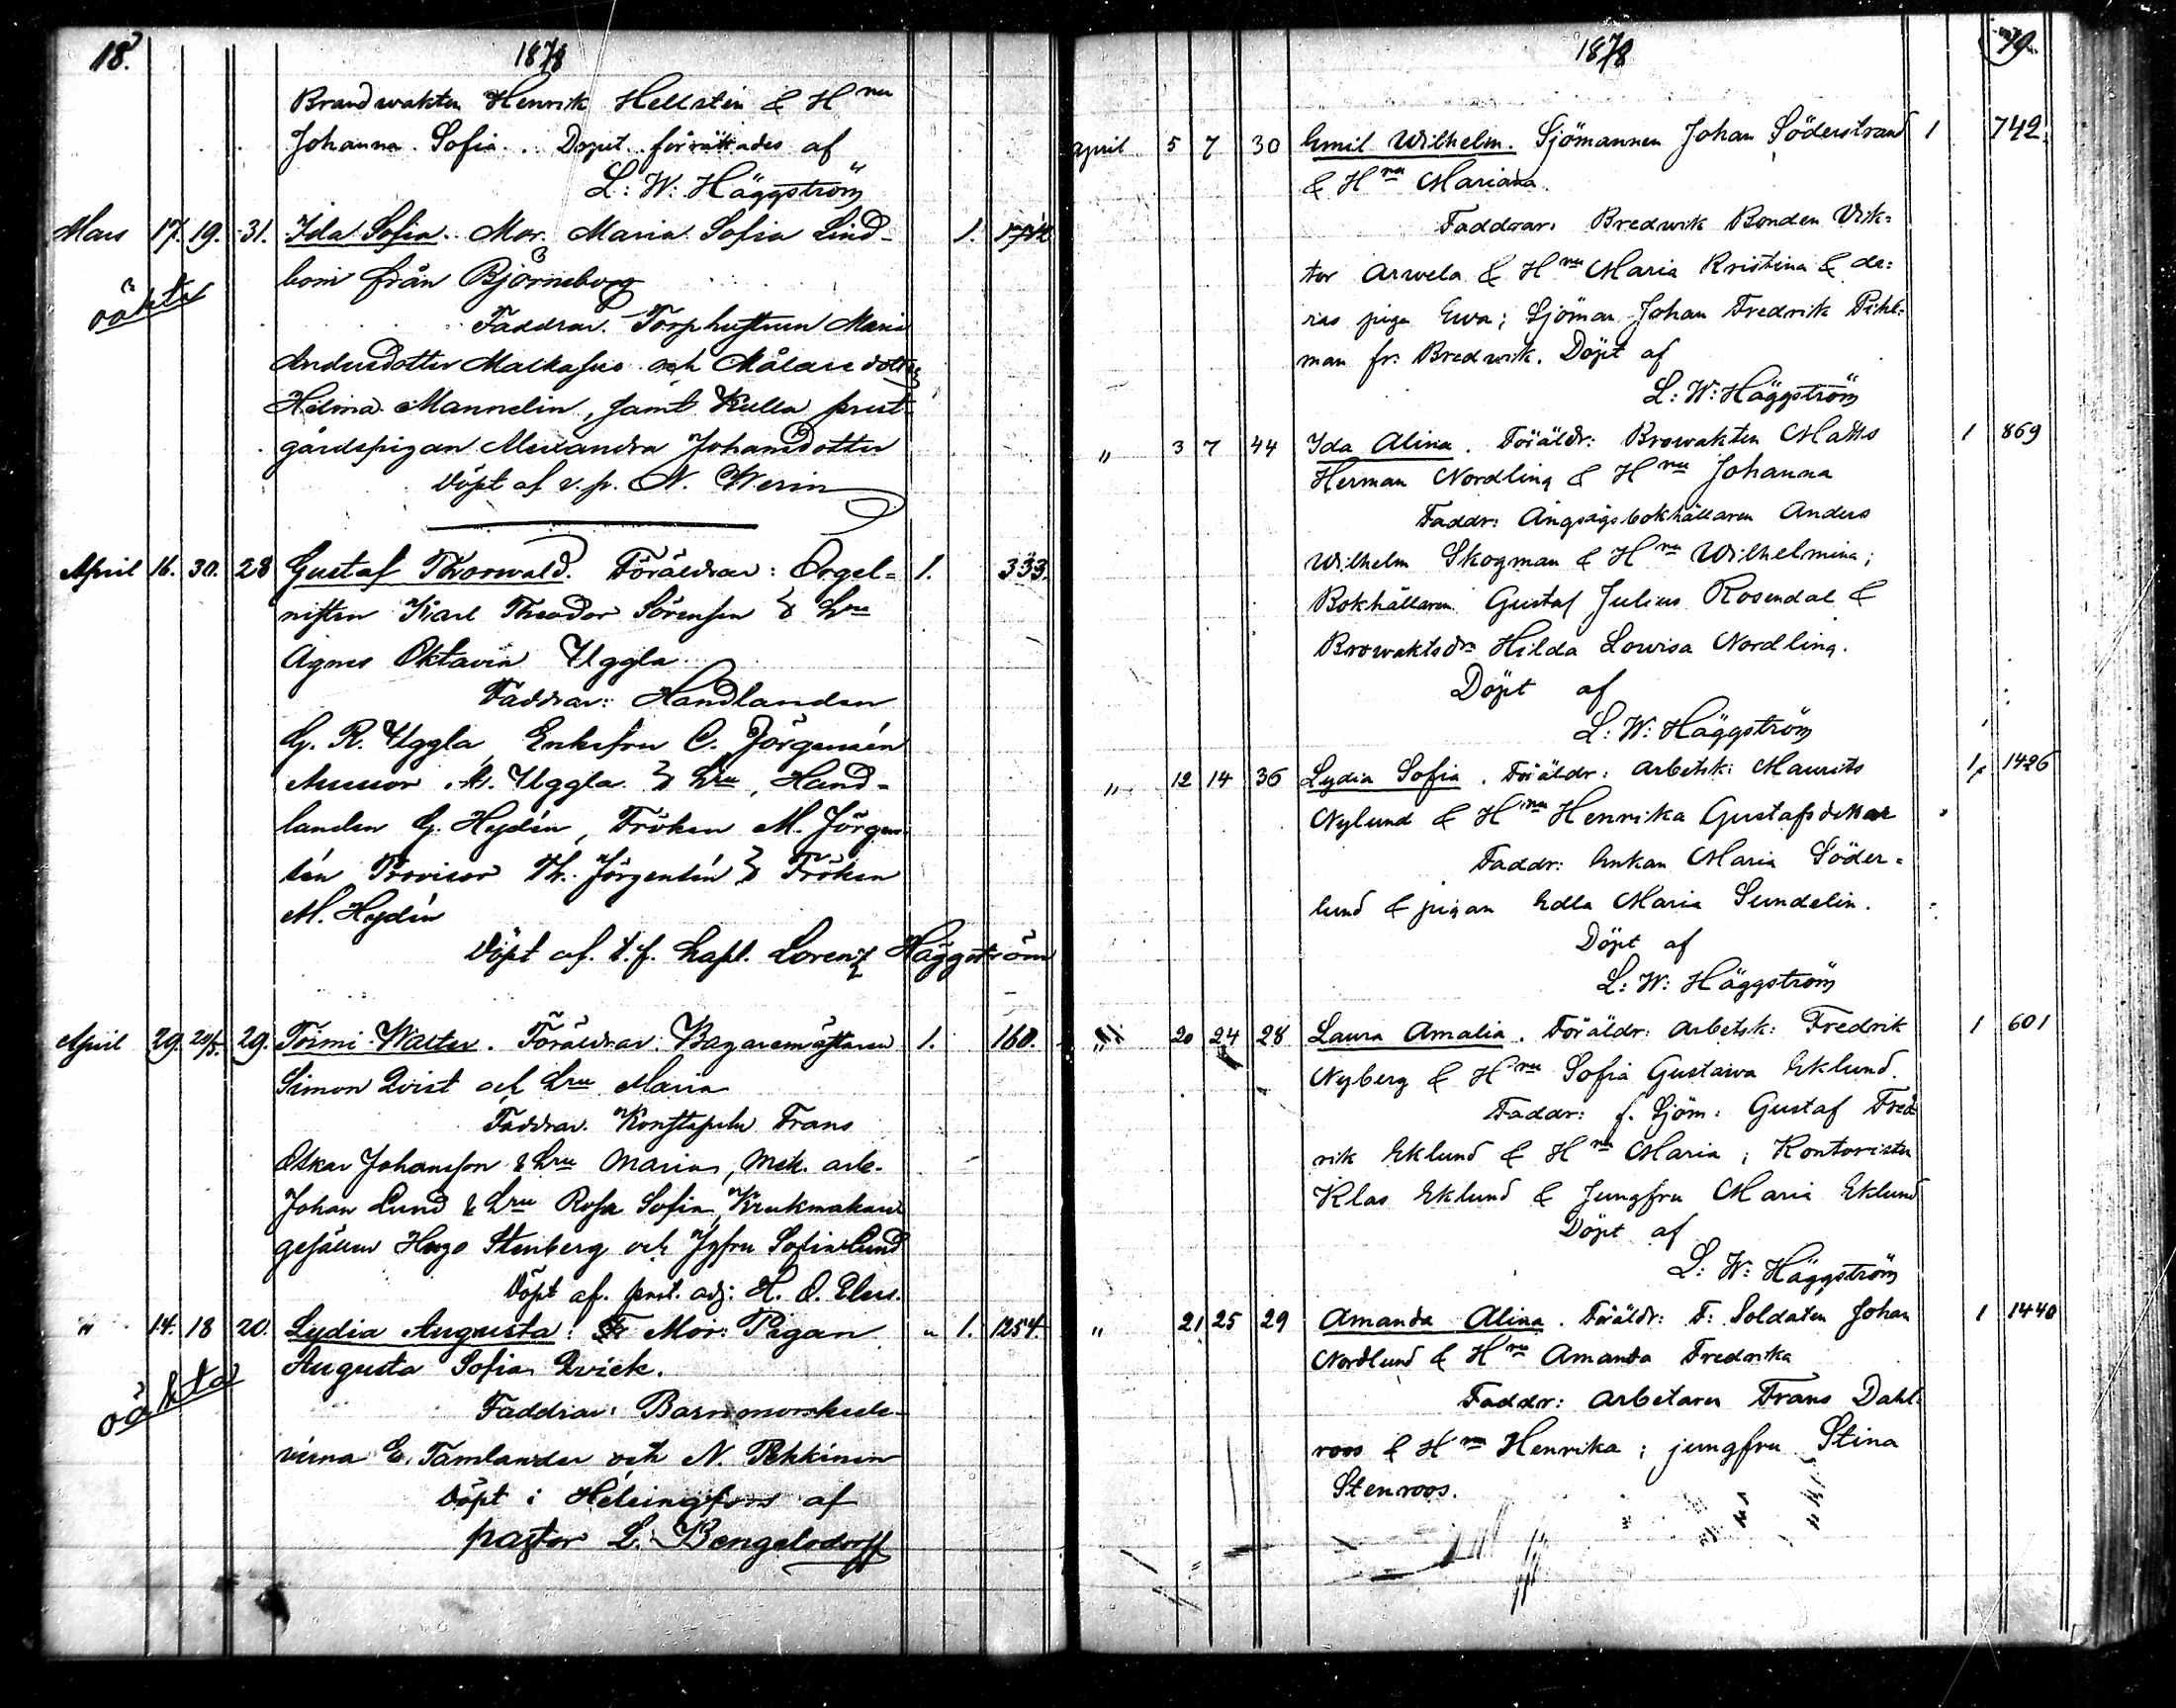 18.
1878
Brandwakten Henrik Hellstén & Hru
Johanna Sofia. Dopet förrättades af
L: W: Häggström
Mars 17. 19. 31. Ida Sofia. Mor. Maria Sofia Lind- 1.
bom från Björneborg
oäkta
Faddrar. Torphustrun Maria
Andersdotter och Målaredottr.
Helmina Mannelin, samt Kulla prest-
gårdspigan Alexandra Johansdotter
Döpt af v. p. N. Werin
April 16. 30. 28 Gustaf Thorwald. Föräldrar: Orgel= 1. 333.
nisten Karl Theodor Sörensen & hru
Agnes Oktavia Uggla
Faddrar: Handlanden
G. R. Uggla, Enkefru C. Jörgensén
A. Uggla & hru, Hand-
landen G. Hydén, Fröken M. Jörgen-
sén Provisor Th. Jörgensén & Fröken
M. Hydén
Döpt af t. f. kapl. Lorentz Häggström
April 29. 20/5. 29. Toimi Walter. Föräldrar. Bagaremästaren 1. 160.
Simon Qvist och hru Maria
Faddrar. Konstapeln Frans
Oskar Johansson & hru Maria, Mek. arb.
Johan Lund & hru Rosa Sofia, Krukmakare
gesällen Hugo Stenberg och Jgfru Sofia Lund
Döpt af. past. adj: H. O.
" 14. 18 20. Lydia Augusta: Mor: Pigan " 1. 1254.
Augusta Sofia Qvick.
oäkta
Faddrar: Barnmorskeele-
verna E. Tamlander och N. Pekkinen
Döpt i Helsingfors af
pastor L. Bengelsdorff
1878
79.
april 5 7 30 Emil Wilhelm. Sjömannen Johan Söderstrand 1 742.
& Hru Mariana.
Faddrar: Bredwik Bonden Vik=
tor Arwela & Hru Maria Kristina & de=
ras piga Ewa; Sjöman Johan Fredrik Pihl=
man fr. Bredwik. Döpt af
L: W: Häggström
" 3 7 44 Ida Alina. Föräldr: Browakten Matts 1 869
Herman Nordling & Hru Johanna
Faddr: Ångsågsbokhållaren Anders
Wilhelm Skogman & Hru Wilhelmina;
Bokhållaren Gustaf Julius Rosendal &
Browaktsdr Hilda Lowisa Nordling.
Döpt af
L: W: Häggström
" 12 14 36 Lydia Sofia. Föräldr: Arbetsk: Maurits 1 1426
Nylund & Hru Henrika Gustafsdotter
Faddr: Enkan Maria Söder=
lund & pigan Edla Maria Sundelin.
Döpt af
L: W: Häggström
" 20 24 28 Laura Amalia. Föräldr: Arbetsk: Fredrik 1 601
Nyberg & Hru Sofia Gustawa Eklund.
Faddr: f. Sjöm: Gustaf Fred
rik Eklund & Hru Maria; Kontoristen
Klas Eklund & Jungfru Maria Eklund
Döpt af
L: W: Häggström
" 21 25 29 Amanda Alina. Föräldr: F: Soldaten Johan 1 1440
Nordlund & Hru Amanda Fredrika
Faddr: Arbetaren Frans Dahl=
roos & Hru Henrika; jungfru Stina
Stenroos.